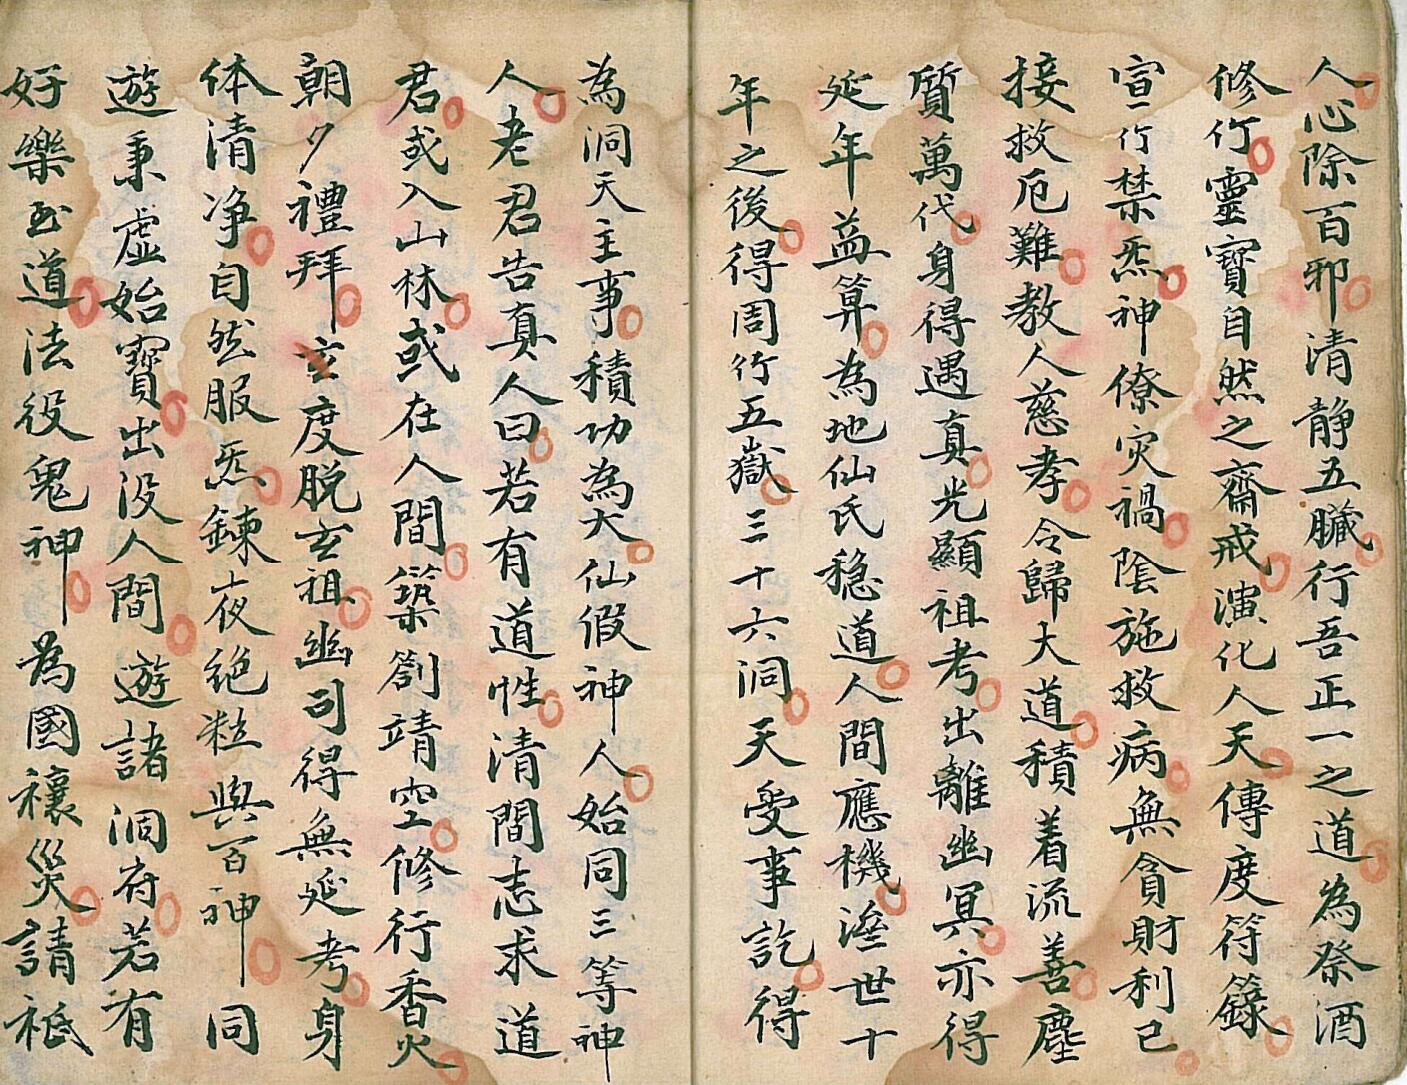 人心除百邪清静五臓行吾正一之道為祭酒
修行靈寶自然之齋戒演化人天傳度符籙
宣行禁炁神僚灾禍陰施救病無貪財利已
接救厄難教人慈孝令歸大道積着流善塵
質萬代身得遇真光顯祖考出離幽冥亦得
延年益算為地仙氏稳道人間應機 世十
年之後得周行五嶽三十六洞天受事訖得
為洞天主事積功為大仙假神人始同三等神
人老君告真人曰若有道性清間志求道
君或入山林或在人間築劄靖空修行香火
朝夕禮拜玄度脱玄祖幽司得無延考身
体清净自然服炁鍊夜绝粒與百神同
遊秉虚始寶出没人間遊諸洞府若有
好樂玄道法役鬼神為國禳災請袛